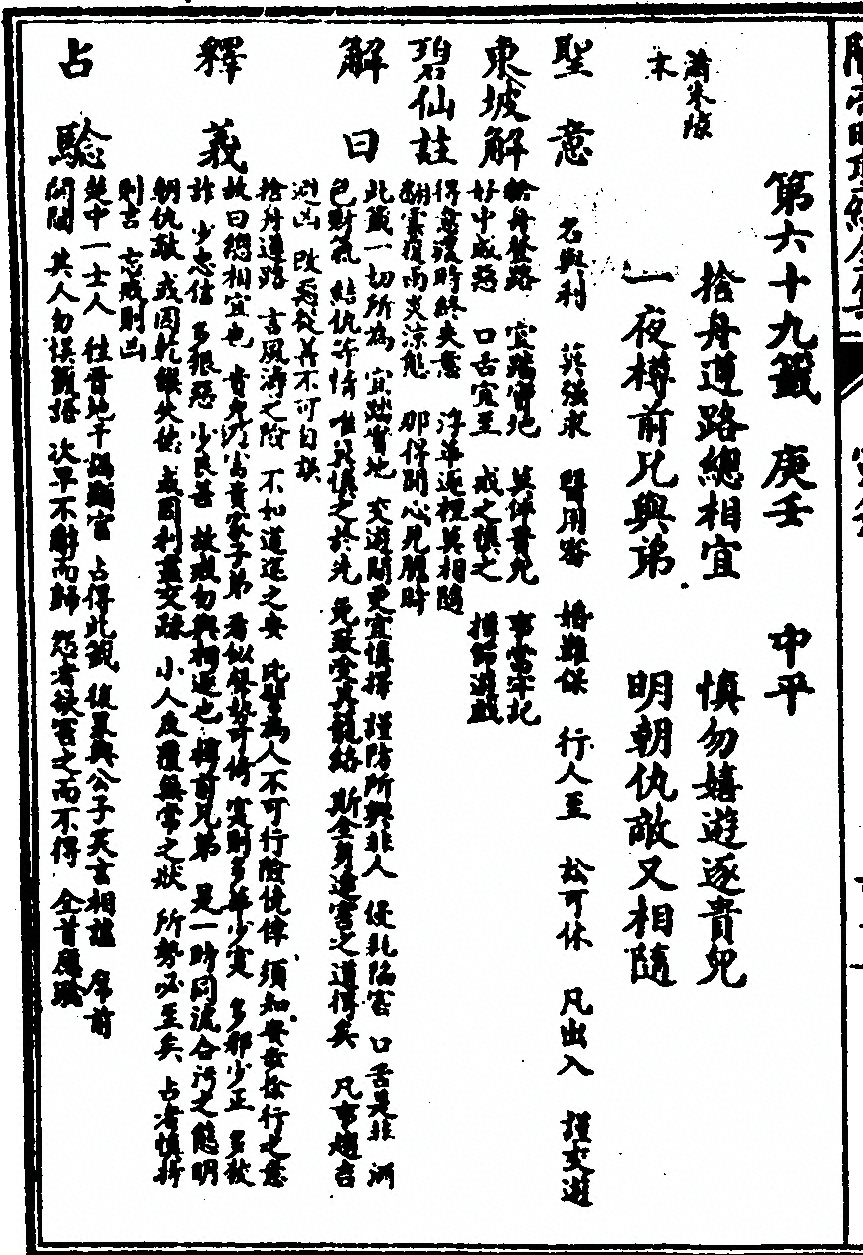 第六十九籤 庚壬 中平
捨舟遵路總相宜 慎勿嬉遊逐貴兒
一夜樽前兄與弟 明朝仇敵又相隨
聖意 名與利 莫強求 醫用審 婚難保 行人至 訟可休 凡出入 謹交遊
東坡解 捨舟登路 宜踏實地 莫伴貴兒 事當牢記
好中成惡 口舌宜至 戒之慎之 撙節遊戲
碧仙註 得意濃時終失意 浮華逐裡莫相隨
翻雲覆雨炎涼態 那得開心見膽時
解曰 此籤一切所為 宜踏實地 交遊間更宜慎擇 謹防所與非人 侵欺陷害 口舌是非 酒
色財氣 結仇等情 唯能慎之於先 免致受其籠絡 斯全身遠害之道得矣 凡事趨吉
避凶 改惡從善不可自誤
釋義 捨舟遵路 言風濤之險 不如道途之安 此譬為人不可行險僥倖 須知安步徐行之意
故曰總相宜也 貴兒乃富貴家子弟 看似錦勢可倚 實則多華少實 多邪少正 多狡
詐 少忠信 多狠惡 少良善 故戒勿與相逐也 樽前兄弟 是一時同流合污之態 明
朝仇敵 或因乾餱失德 或因利盡交疎 小人反覆無常之狀 所勢必至矣 占者慎將
則吉 忘戒則凶
占驗 楚中一士人 往晉地干謁顯官 占得此籤 後果與公子笑言相謔 席前
鬩鬩 其人勿誤籤語 次早不辭而歸 怨者欲害之而不得 全首應驗